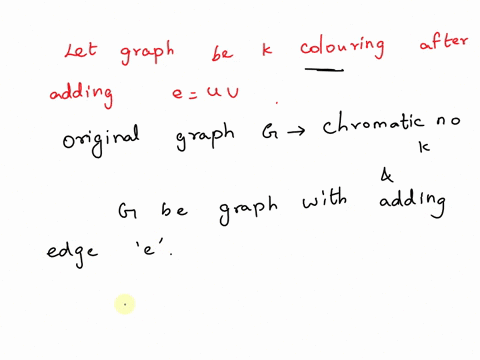 Let graph be k colouring after
adding e = uv .
original graph G → chromatic no
k
&
G be graph with adding
edge 'e'.